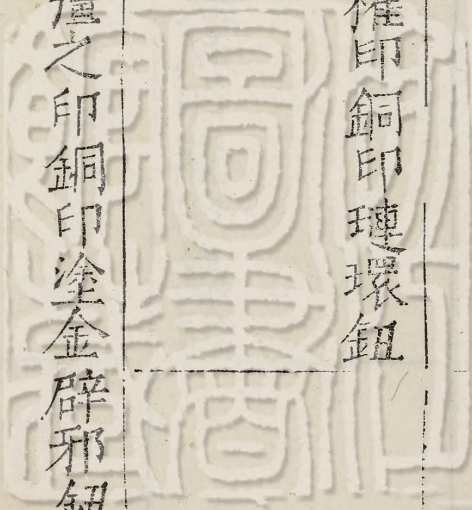 印銅印璉環鈕
之印銅印塗金辟邪鈕